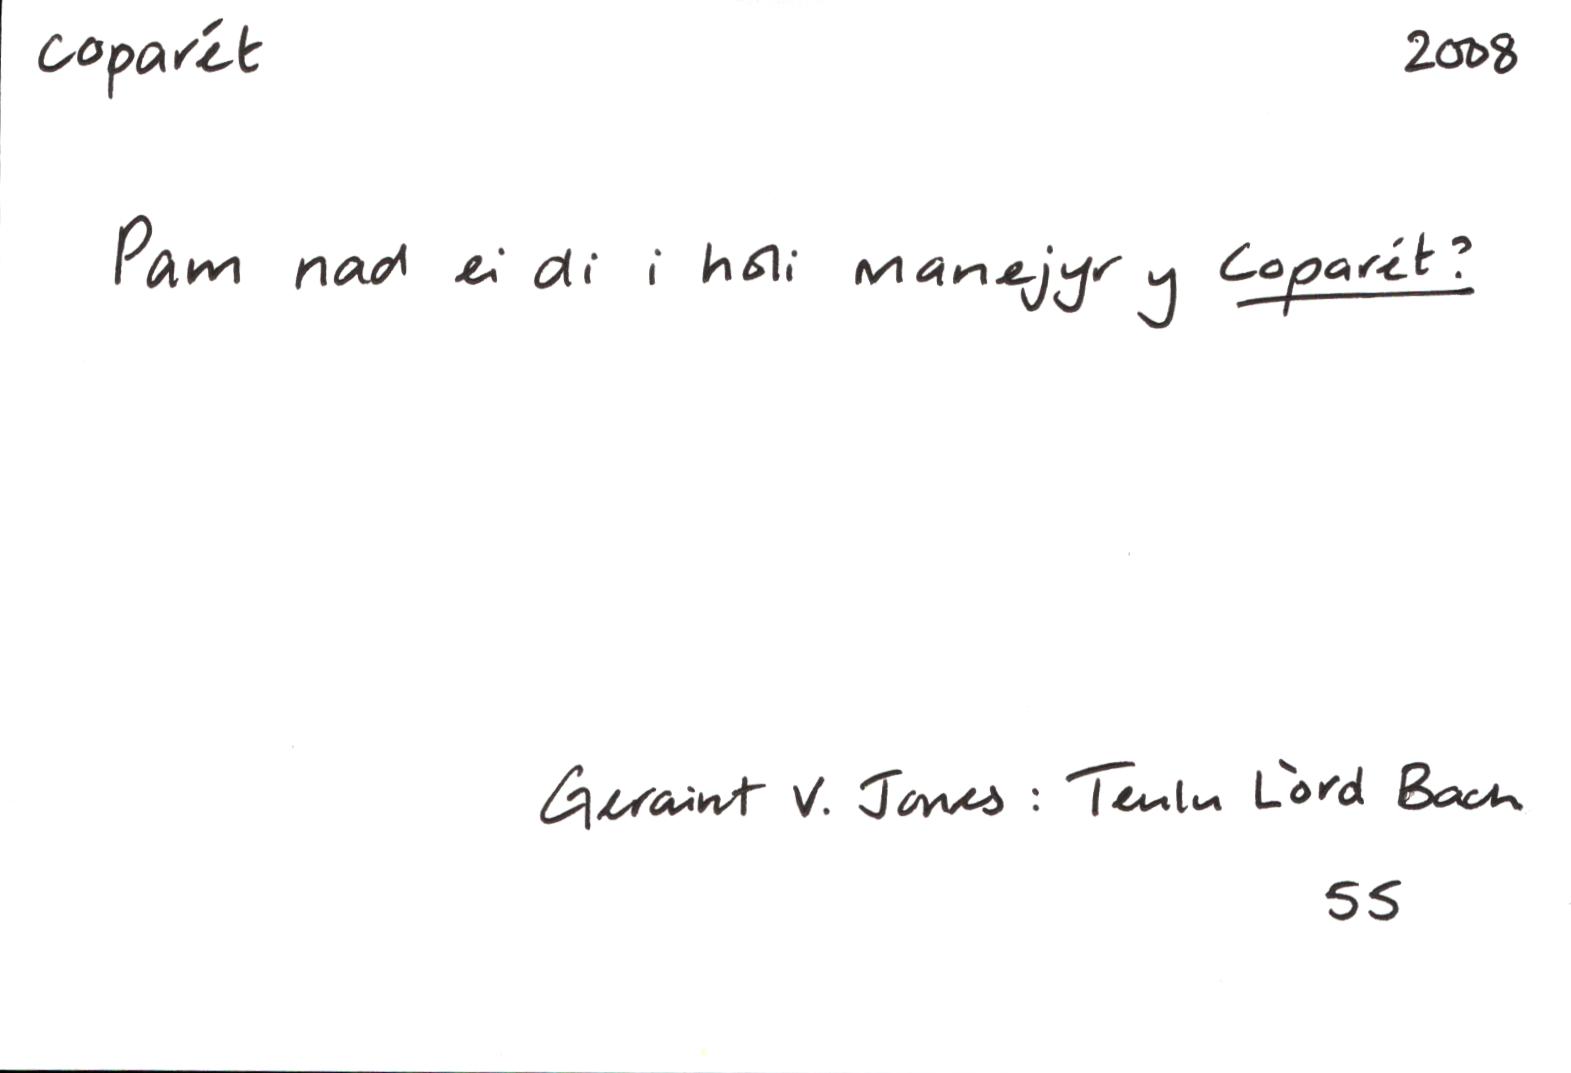 coparét 2008
Pam nad ei di i holi manejyr y Coparét?
Geraint V. Jones: Teulu Lòrd Bach
55